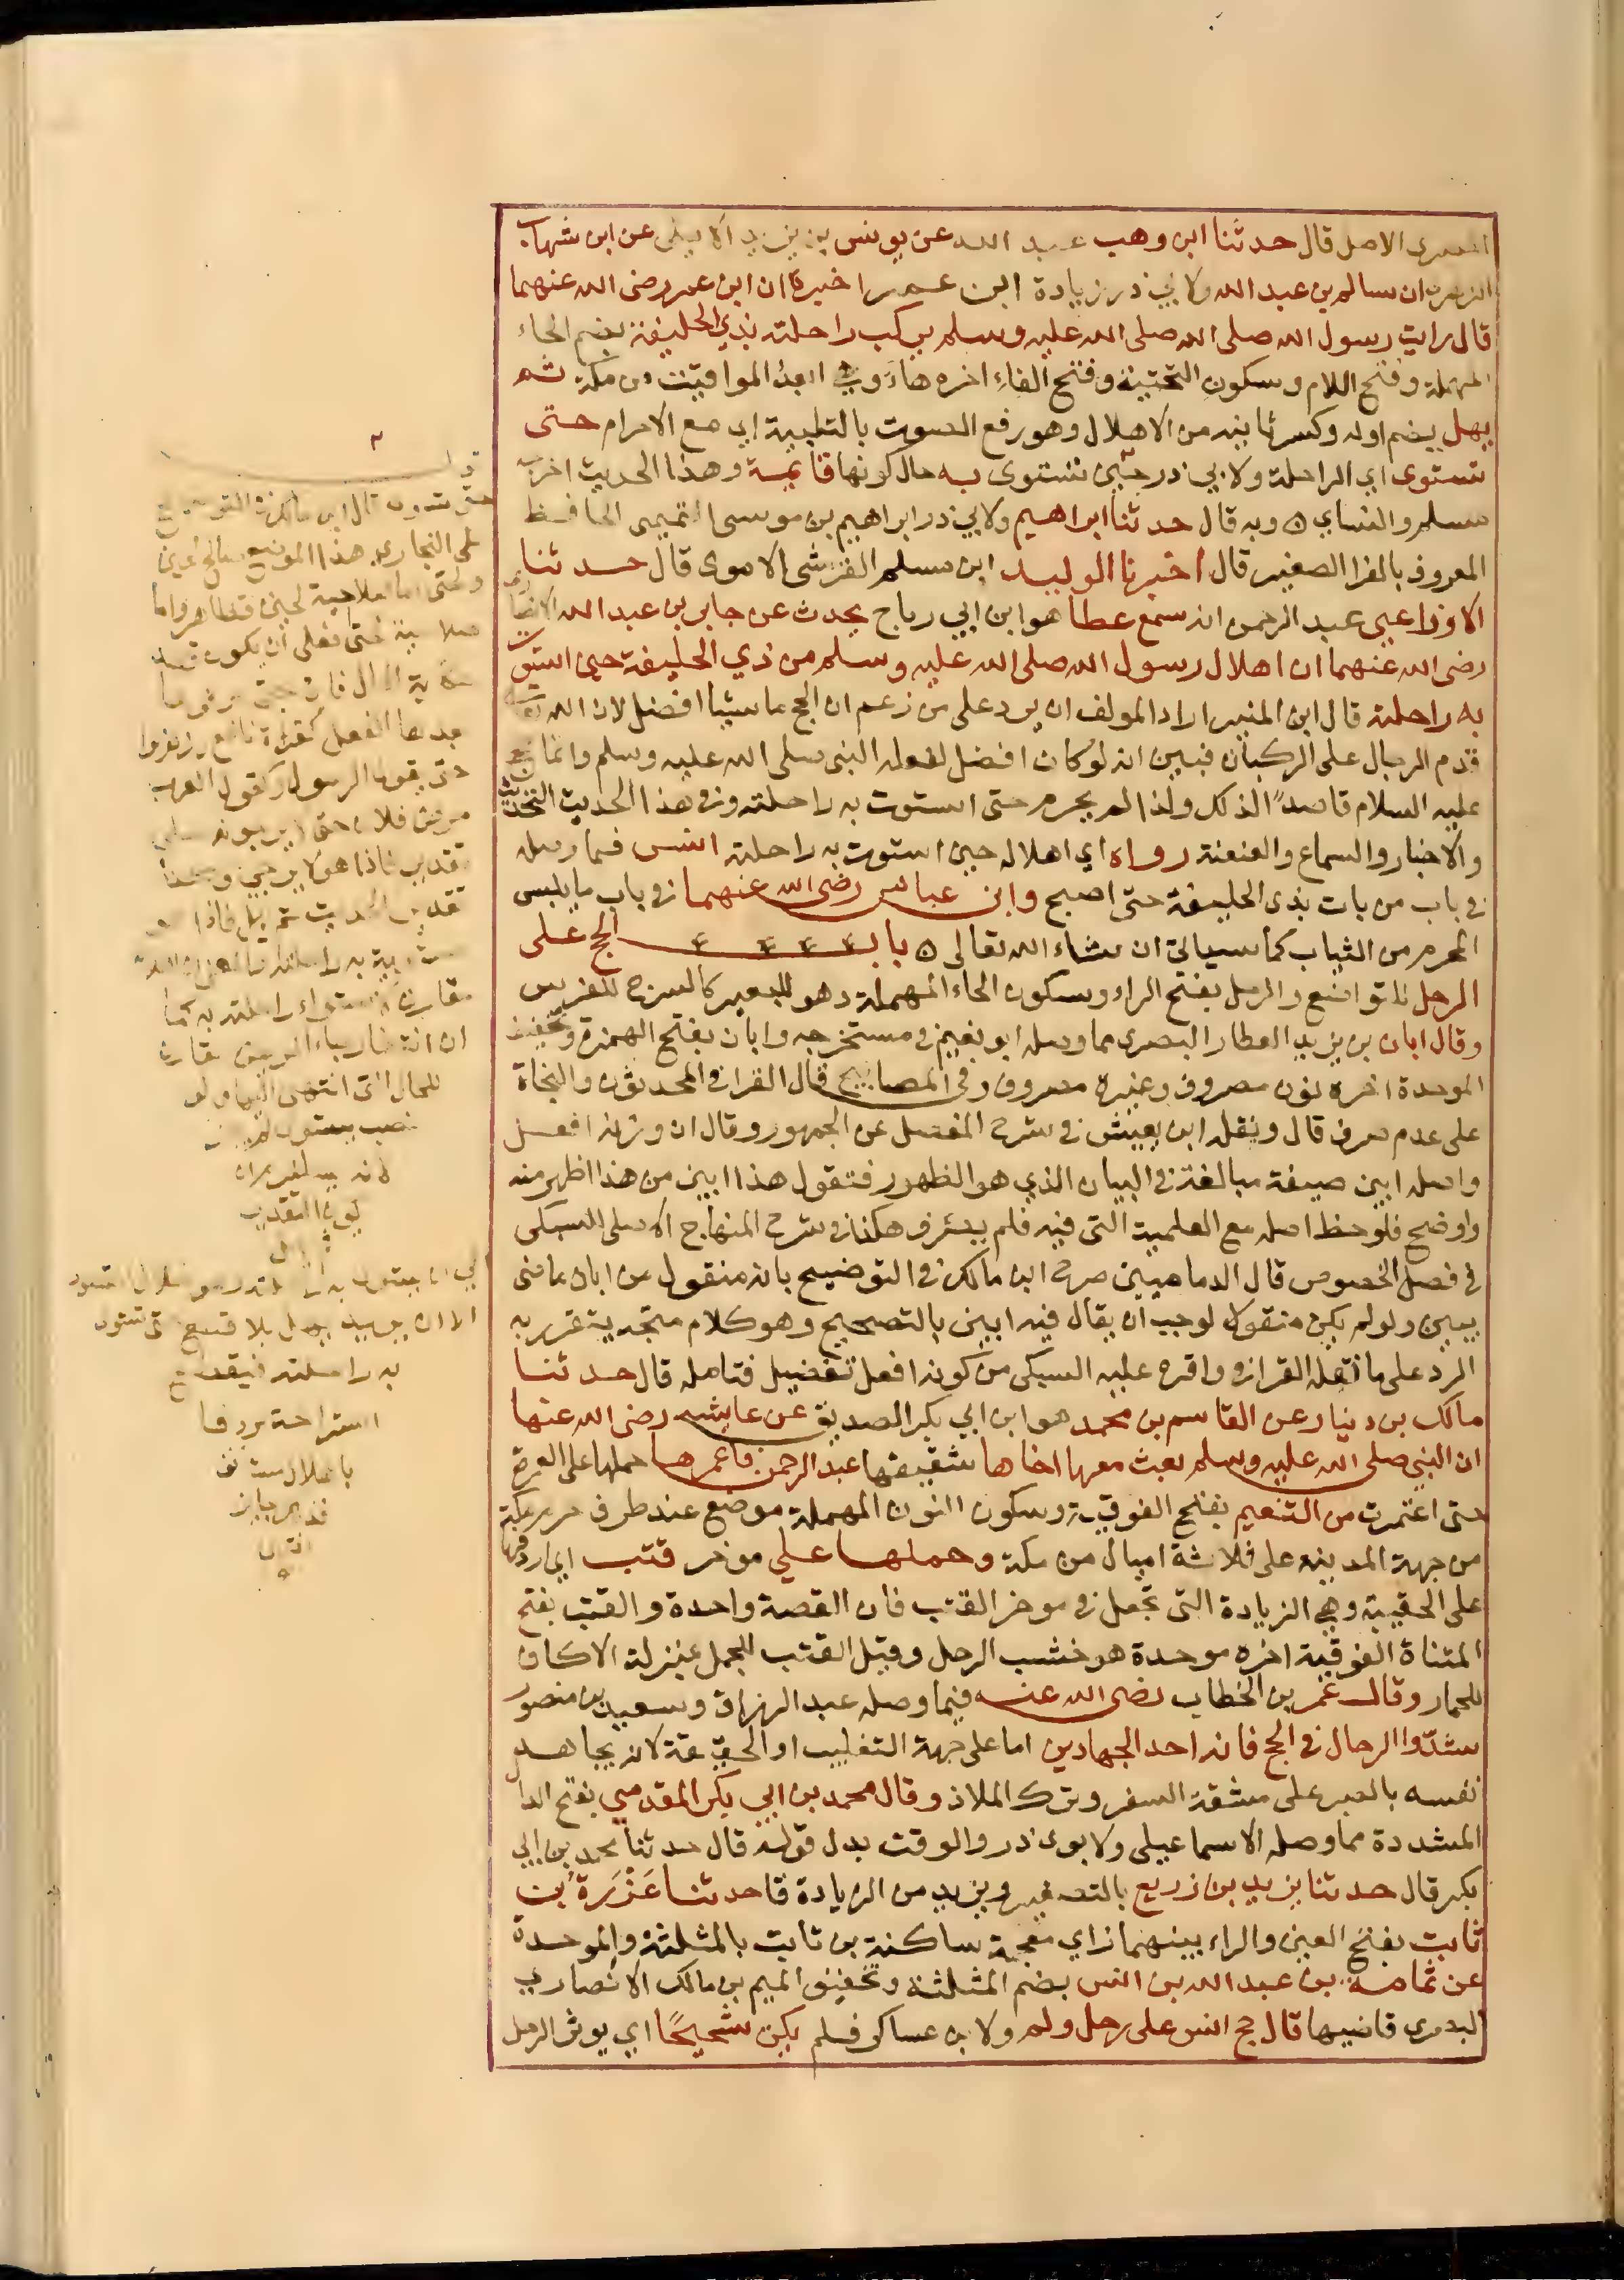 المصرى الاصل قال حدثنا ابن وهب عبد الله عن يونس بن يزيد الايلى عن ابن شهاب
الزهرى ان سالم بن عبد الله ولابي ذر زيادة ابن عمر اخبره ان ابن عمر رضى الله عنهما
قال رايت رسول الله صلى الله صلى الله عليه وسلم يركب راحلته بذي الحليفة بضم الحاء
المهملة وفتح اللام وسكون التحتية وفتح الفاء اخره هاء وهي ابعد المواقيت من مكة ثم
يهل بضم اوله وكسر ثانيه من الاهلال وهو رفع الصوت بالتلبية اي مع الاحرام حتى
تستوى اي الراحلة ولابي ذر حين تستوى به حال كونها قايمة وهذا الحديث اخرجه
مسلم والنساي ه وبه قال حدثنا ابراهيم ولابي ذر ابراهيم بن موسى التميمى الحافظ
المعروف بالفرا الصغير قال اخبرنا الوليد ابن مسلم القرشى الاموى قال حدثنا
الاوزاعي عبد الرحمن انه سمع عطا هو ابن ابي رباح يحدث عن جابر بن عبد الله الانصارى
رضى الله عنهما ان اهلال رسول الله صلى الله عليه وسلم من ذي الحليفة حين استوت
به راحلته قال ابن المنير اراد المولف ان يرد على من زعم ان الحج ماشيا افضل لان الله تعالى
قدم الرجال على الركبان فبين انه لو كان افضل لفعله النبى صلى الله عليه وسلم وانما حج
عليه السلام قاصدًا لذلك ولذا لم يحرم حتى استوت به راحلته وفي هذا الحديث التحديث
والاخبار والسماع والعنعنة رواه اي اهلاله حين استوت به راحلته انس فما وصله
في باب من بات بذى الحليفة حتى اصبح وابن عباس رضى الله عنهما في باب ما يلبس
المحرم من الثياب كما سياتى ان شاء الله تعالى ه باب الحج على
الرحل للتواضع والرحل بفتح الراء وسكون الحاء المهملة وهو للبعير كالسرج للفرس
وقال ابان بن يزيد العطار البصرى مما وصله ابو نعيم في مستخرجه وابان بفتح الهمزة وتخفيف
الموحدة اخره نون مصروف وغيره مصروف وفي المصابيح قال القرافى المحدثون والنحاة
على عدم صرفه قال ونقله ابن يعيش في شرح المفصل عن الجمهور وقال ان وزنه افعل
واصله ابين صيغة مبالغة في البيان الذي هو الظهور فتقول هذا ابين من هذا اظهر منه
واوضح فلوحظ اصله مع العلمية التى فيه فلم يصرف هكذا في شرح المنهاج الاصلى للسبكى
في فصل الخصوص قال الدمامينى صرح ابن مالك في التوضيح بانه منقول من ابان ماضى
يبين ولو لم يكن منقولا لوجب ان يقال فيه ابين بالتصحيح وهو كلام متجه يتقرر به
الرد على ما نقله القرافى واقره عليه السبكى من كونه افعل تفضيل فتامله قال حدثنا
مالك بن دينار عن القاسم بن محمد هو ابن ابي بكر الصديق عن عايشه رضى الله عنها
ان النبي صلى الله عليه وسلم بعث معها اخاها شقيقها عبد الرحمن فاعمرها حملها على العمرة
حتى اعتمرت من التنعيم بفتح الفوقية وسكون النون المهملة موضع عند طرف حرم مكة
من جهة المدينه على ثلاثة اميال من مكة وحملها علي موخر قتب اي اردفها
على الحقيبة وهي الزيادة التى تجعل في موخر القتب فان القصة واحدة والقتب بفتح
المثناة الفوقية اخره موحدة هو خشب الرحل وقيل القتب للجمل بمنزلة الاكاف
للحمار وقال عمر بن الخطاب رضى الله عنه فيما وصله عبد الرزاق وسعيد بن منصور
شدّوا الرحال في الحج فانه احد الجهادين اما على جهة التغليب او الحقيقة لانه يجاهد
نفسه بالصبر على مشقة السفر وترك الملاذ وقال محمد بن ابي بكر المقدمي بفتح الدا
المشددة مما وصله الاسماعيلى ولابوى ذر والوقت بدل قوله قال حدثنا محمد بن ابي
بكر قال حدثنا يزيد بن زريع بالتصغير ويزيد من الزيادة قا حدثنا عَزْرَة بن
ثابت بفتح العين والراء بينهما زاي معجمة ساكنة بن ثابت بالمثلثة والموحدة
عن ثمامة بن عبد الله بن انس بضم المثلثة وتخفيف الميم بن مالك الانصارى
البصرى قاضيها قال حج انس على رحل ولم ولابن عساكر فلم يكن شحيحًا اي يوثر الرحل
حتى يستوى قال ابن مالك في التوضيح
على البخاري هذا الموضع صالح لحين
ولحتى اما صلاحية لحين فظاهر واما
بعدها الفعل كقراة نافع وزلزلوا
حتى يقول الرسول وكقول العرب
مرض فلان حتى لا يرجونه على
تقدير فاذا هو لا يرجى
به راحلته فيقطع
استراحة مردفا